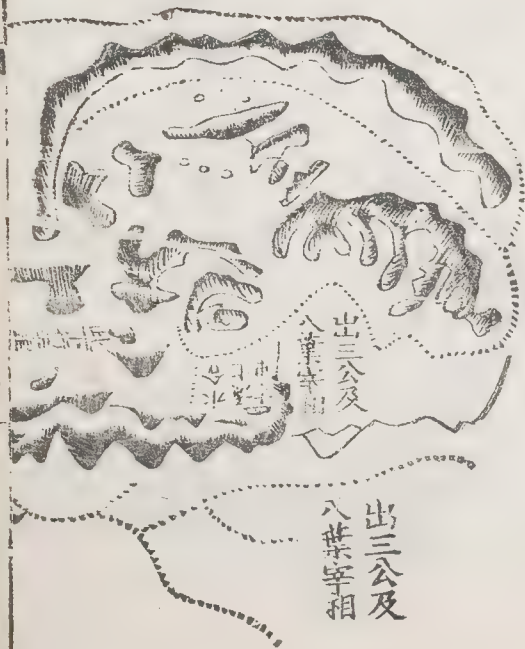 出三公及
八葉宰相
水合
出三公及
八葉宰相